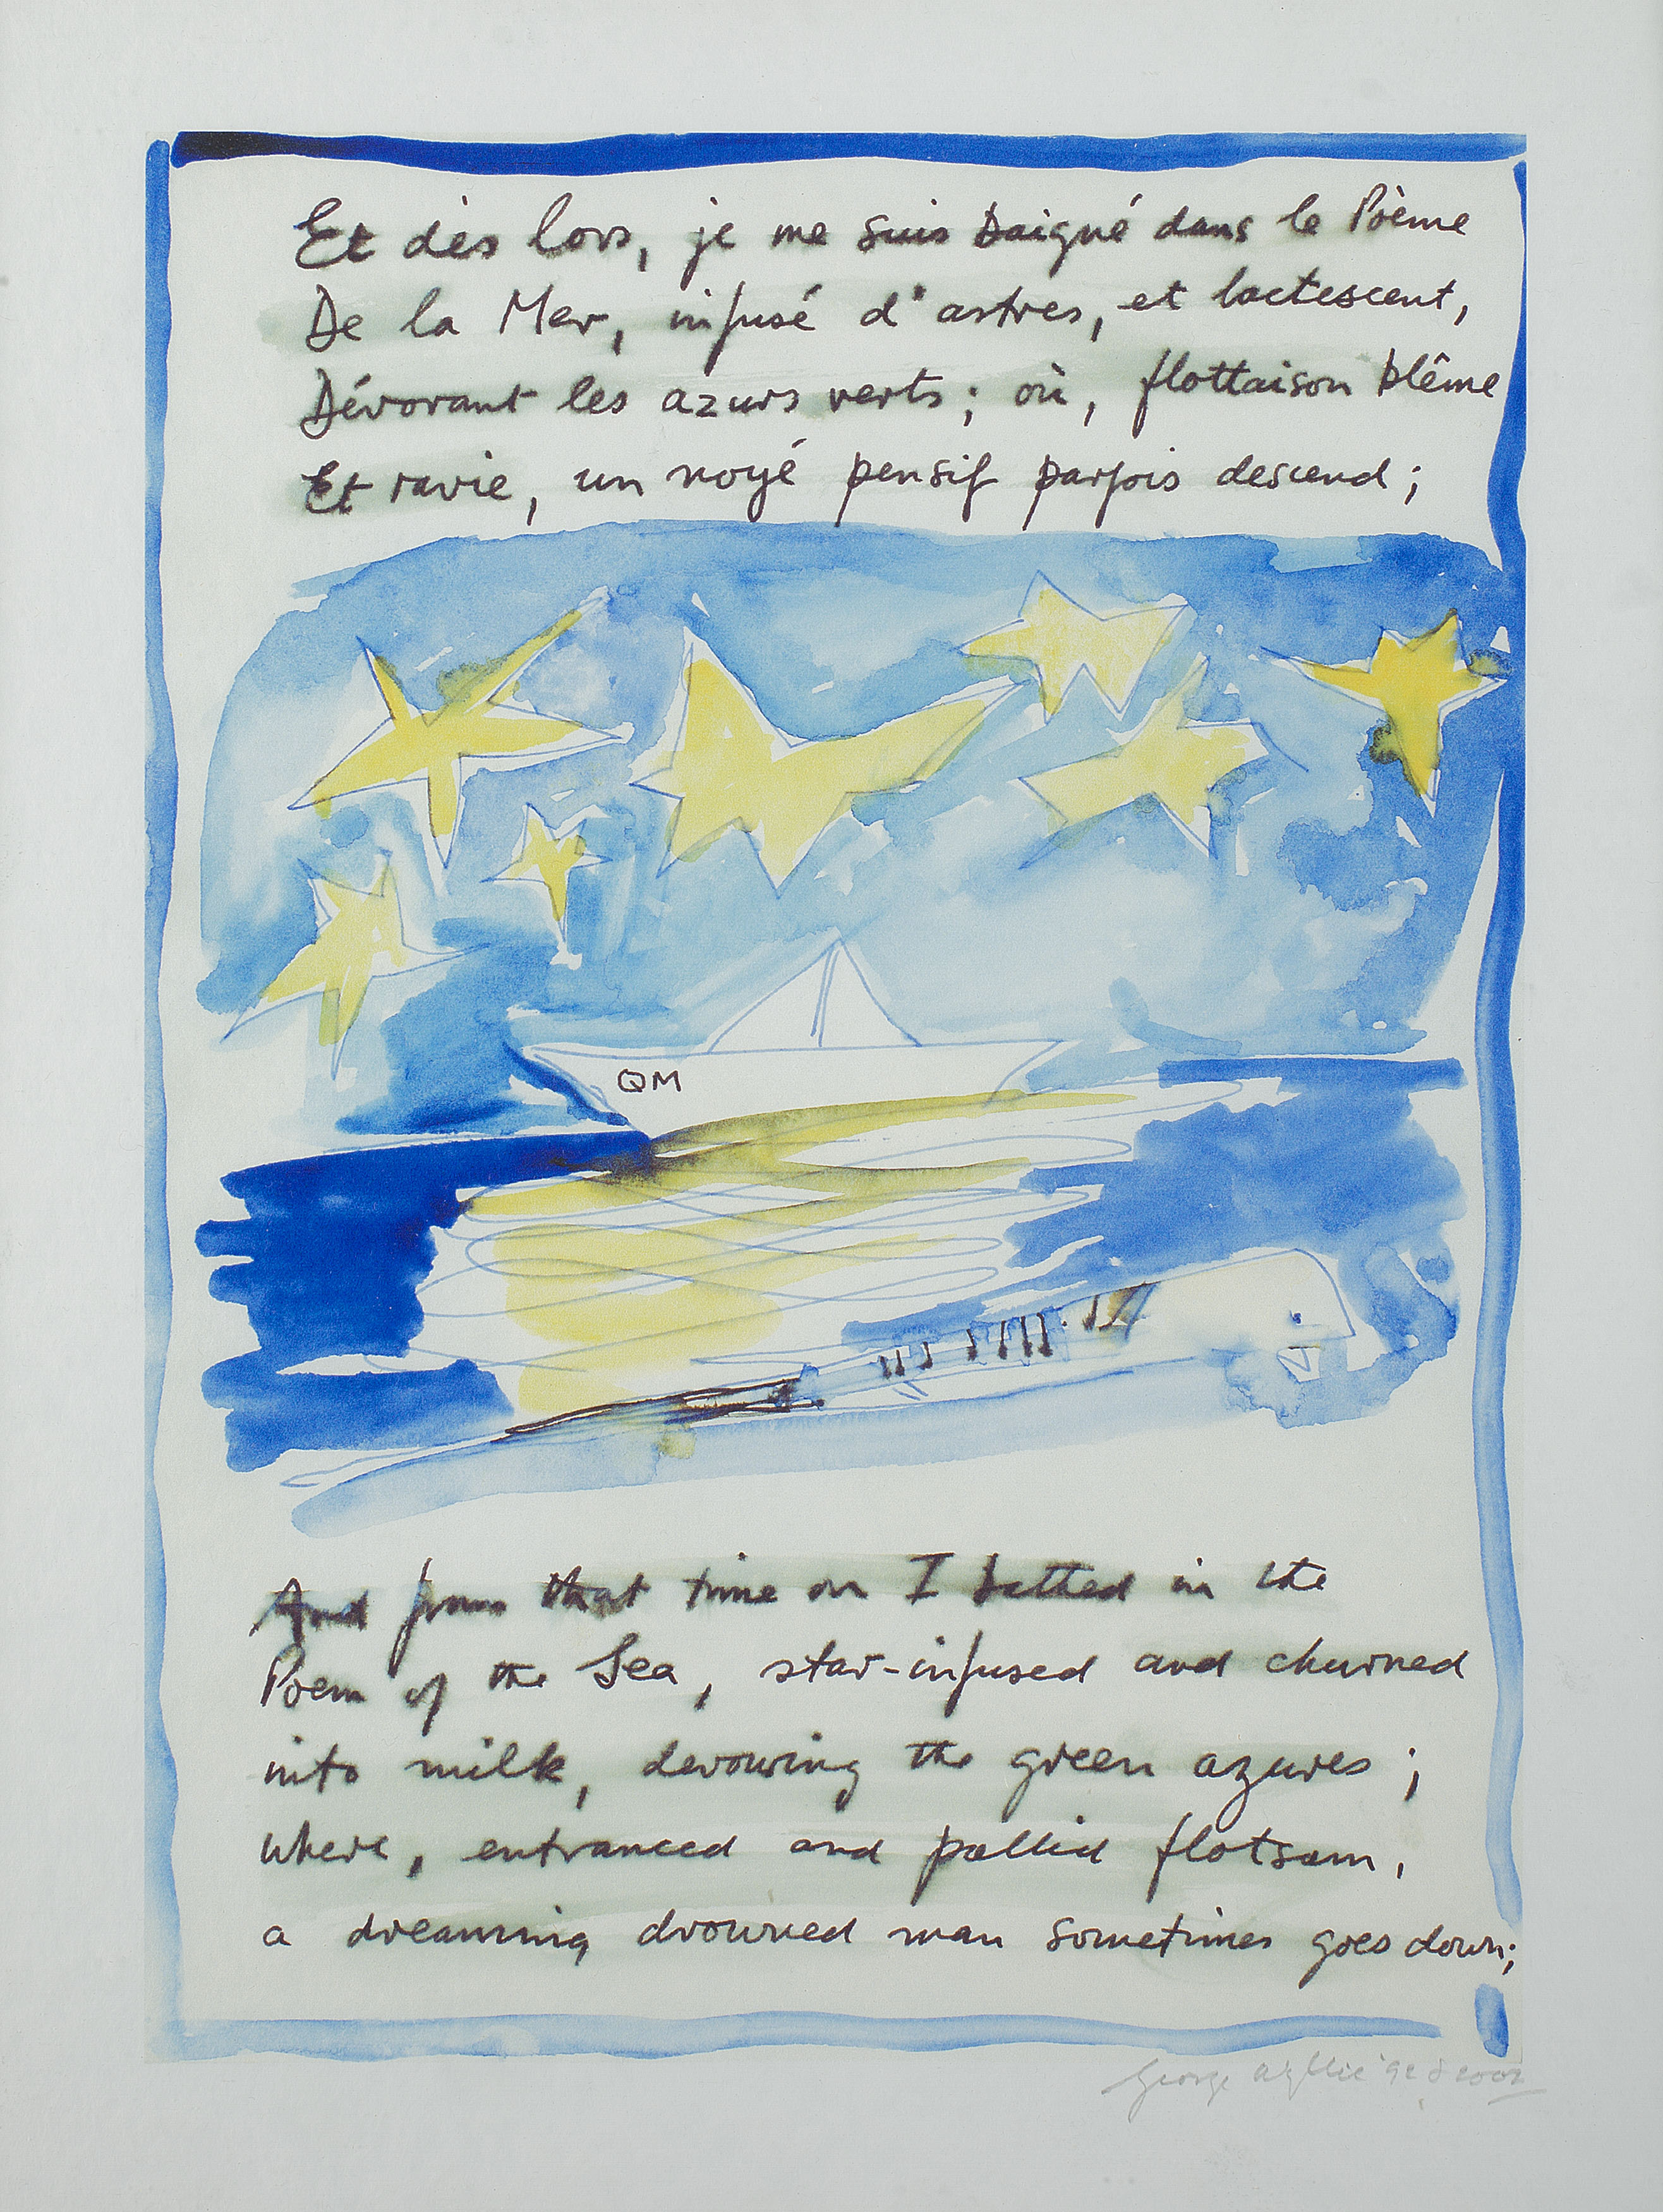 Et dès lors, je me suis baigné dans le Poème
De la Mer, infusé d'astres, et lactescent,
Dévorant les azurs verts; où, flottaison blême
Et ravie, un noyé pensif parfois descend;
QM
And from that time on I bathed in the
Poem of the Sea, star-infused and churned
into milk, devouring the green azures;
where, entranced and pallid flotsam,
a dreaming drowned man sometimes goes down;
George Wyllie '92 & 2002